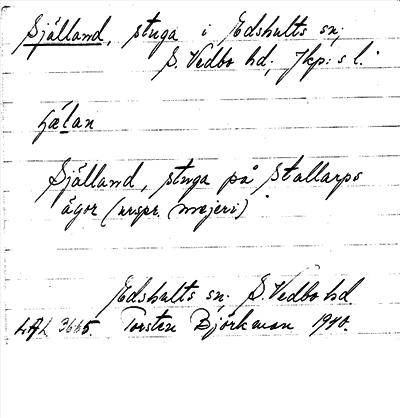 Själland, stuga i Edshults sn,
S. Vedbo hd, Jkp:s l.
Själland, stuga på Stallarps
ägor (urspr. mejeri)
Edshults sn. S. Vedbo hd.
Torsten Björkman 1940.